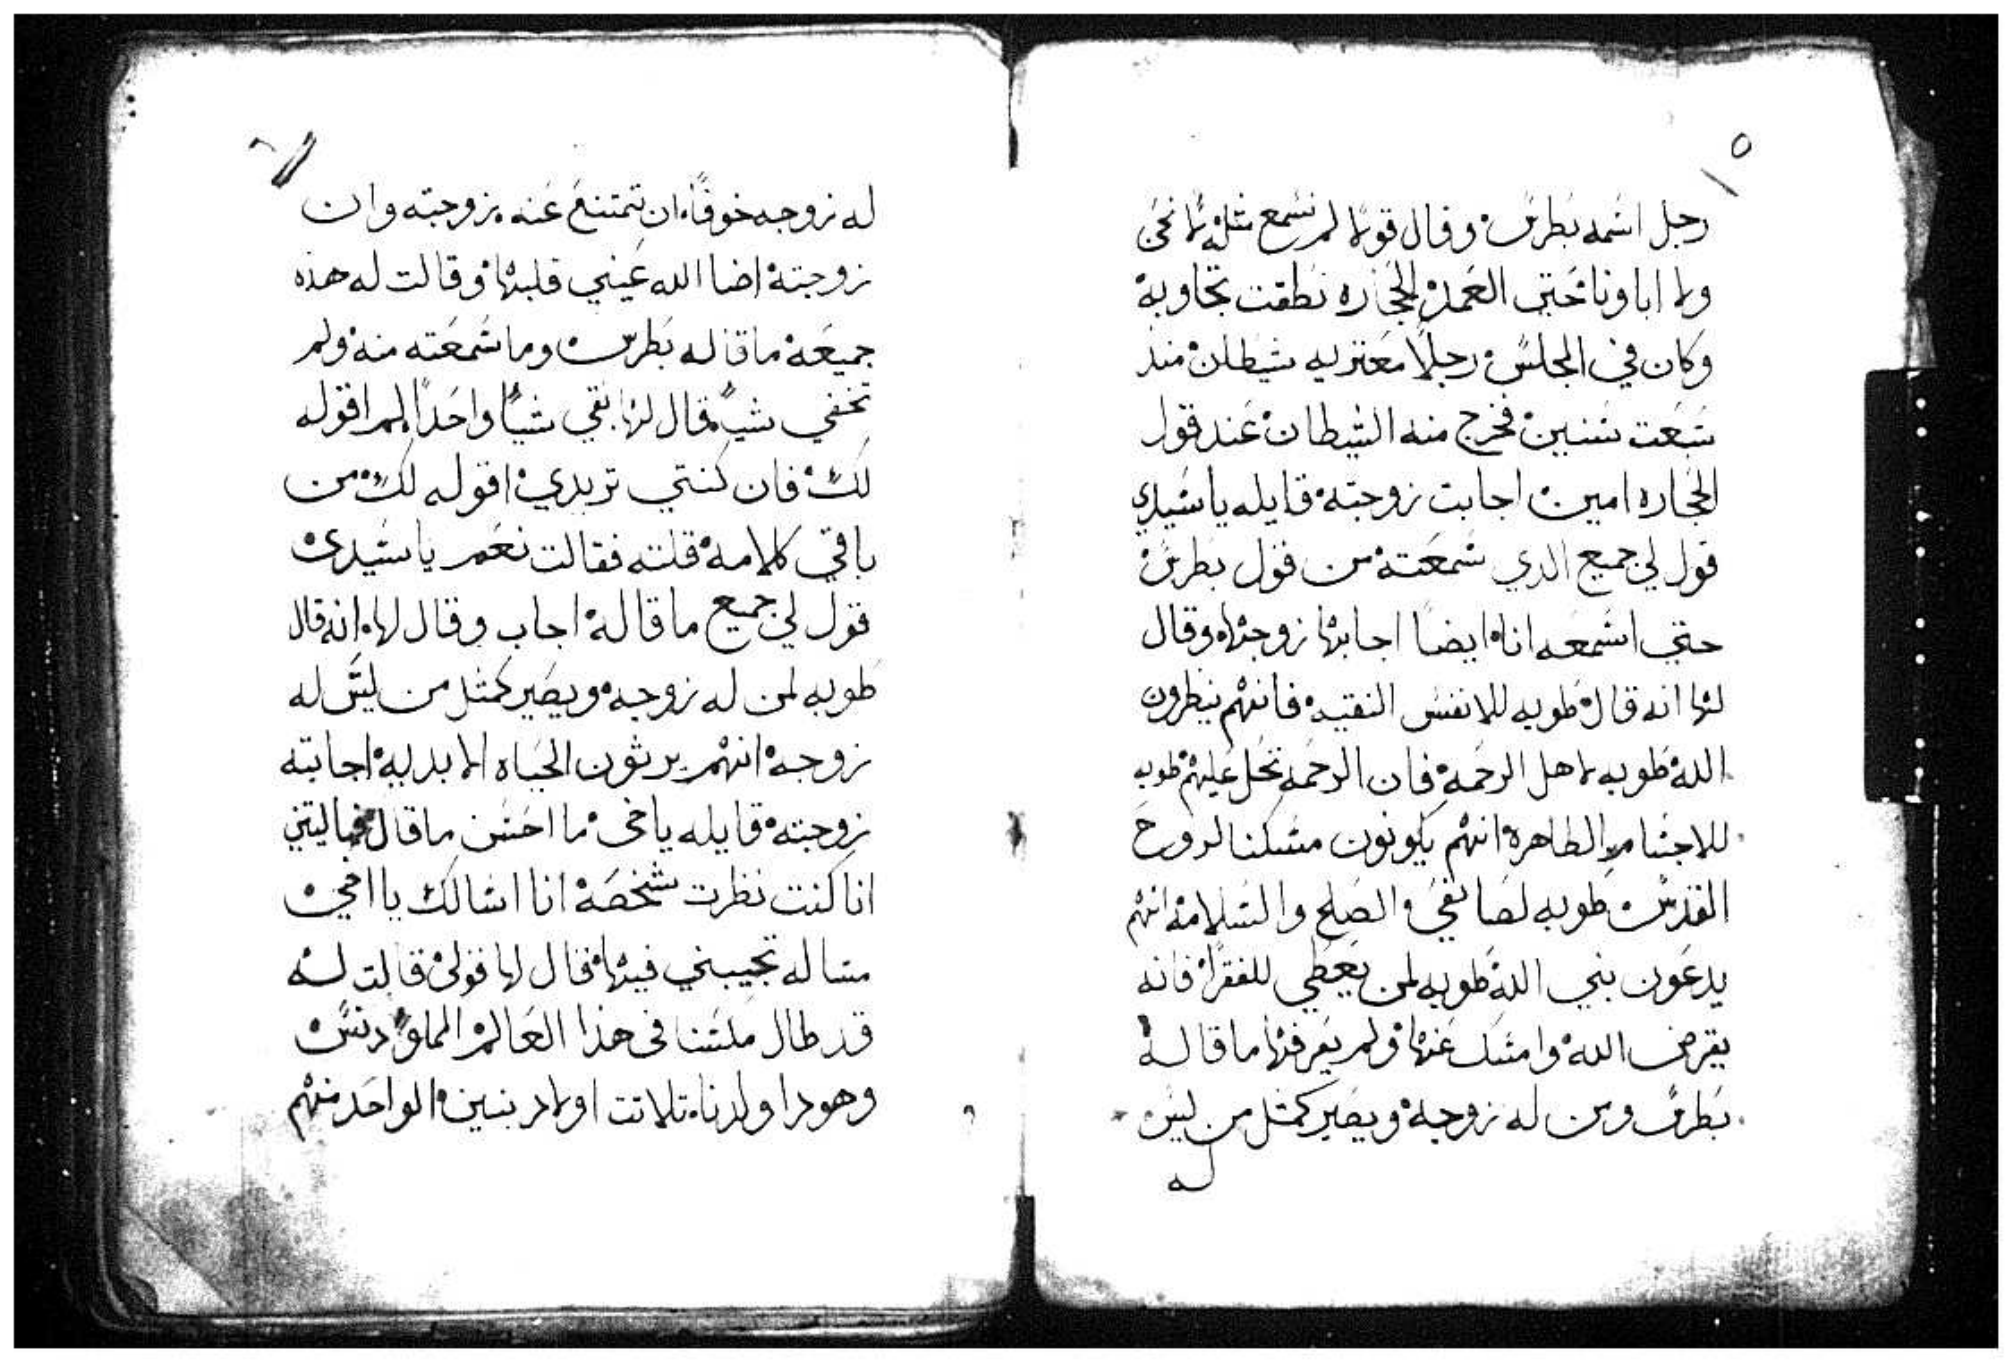 رجل اسمه بطرس وقال قولا لم نسمع مثله لا نحن
ولا اباونا حتي العمد الحجاره نطقت تجاوبه
وكان في المجلس رجلا معتريه شيطان منذ
سبعت سنين فخرج منه الشيطان عند قول
الحجاره امين اجابت زوجته قايله يا سيدي
قول لي جميع الدي سمعته من قول بطرس
حتي اسمعه انا ايضا اجابها زوجها وقال
لها انه قال طوبه للانفس النقيه فانهم ينظرون
الله طوبه لاهل الرحمه فان الرحمه تحل عليهم طوبه
للاجسام الطاهره انهم يكونون مسكنا لروح
القدس طوبه لصانعي الصلح والسلامه انهم
يدعون بني الله طوبه لمن يعطي للفقرا فانه
يقرض الله وامسك عنها ولم يعرفها ما قاله
بطرس ومن له زوجه ويصير كمثل من ليس
له
له زوجه خوفا ان تمتنع عنه زوجته وان
زوجته اضا الله عيني قلبها وقالت له هذه
جميعه ما قاله بطرس وما سمعته منه ولم
تخفي شيا قال لها بقي شيا واحدا لم اقوله
لك فان كنتي تريدي اقوله لك من
باقي كلامه قلته فقالت نعم يا سيدي
قول لي جميع ما قاله اجاب وقال لها انه قال
طوبه لمن له زوجه ويصير كمثل من ليس له
زوجه انهم يرثون الحياه الابديه اجابته
زوجته قايله ياخي ما احسن ما قال فياليتني
انا كنت نظرت شخصه انا اسالك يا اخي
مساله تجيبني فيها فقال لها قولي قالت له
قد طال مكسنا في هذا العالم المملو دنس
وهودا ولدنا تلاتت اولاد بنين الواحد منهم